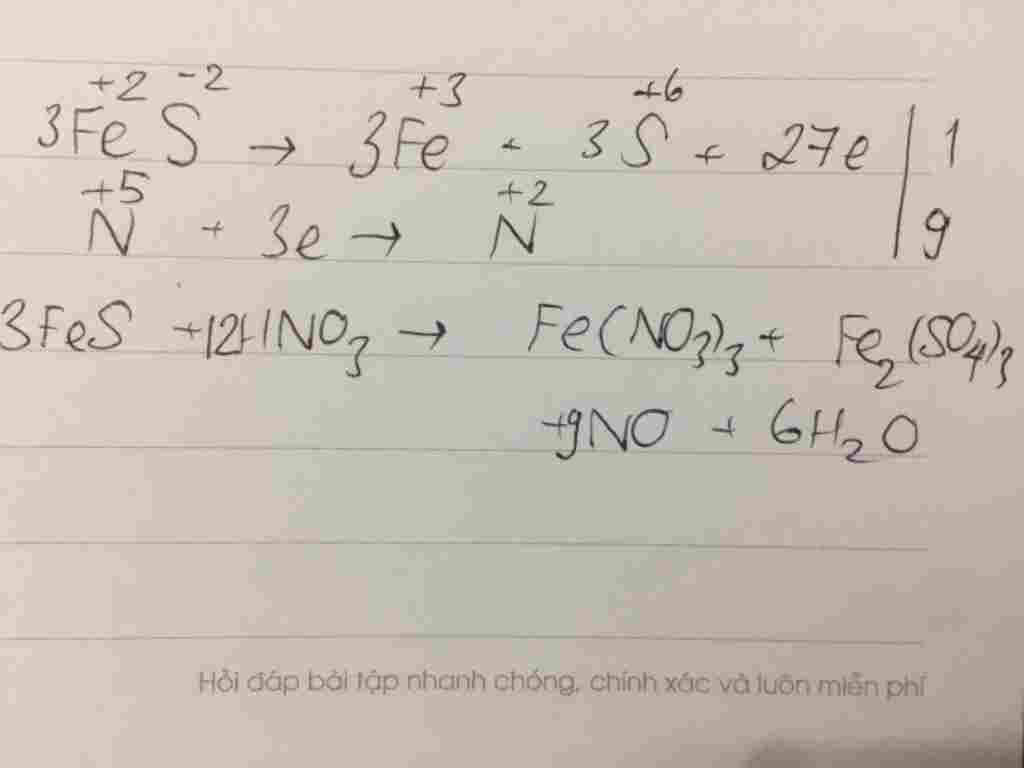 +2 -2 +3 +6
3FeS → 3Fe + 3S + 27e | 1
+5 +2
N + 3e → N | 9
3FeS +12HNO3 → Fe(NO3)3 + Fe2(SO4)3
+9NO + 6H2O
Hỏi đáp bài tập nhanh chóng, chính xác và luôn miễn phí